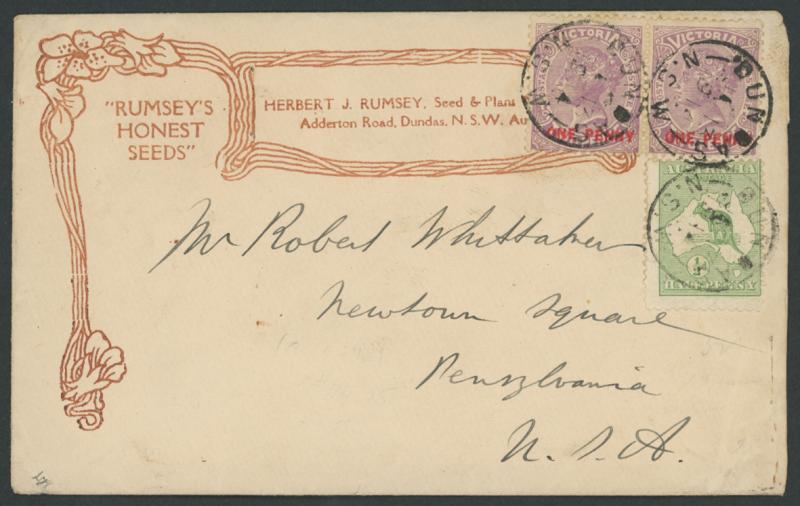 "RUMSEY'S
HONEST
SEEDS"
HERBERT J. RUMSEY, Seed & Plant
Adderton Road, Dundas, N.S.W. Au
VICTORIA
ONE PENNY
VICTORIA
ONE PENNY
AUSTRALIA
½
HALF PENNY
DUNDAS
N.S.W
DUNDAS
N.S.W
DUN
N.S
Mr Robert Whittaker
Newtown Square
Pensylvania
U.S.A.